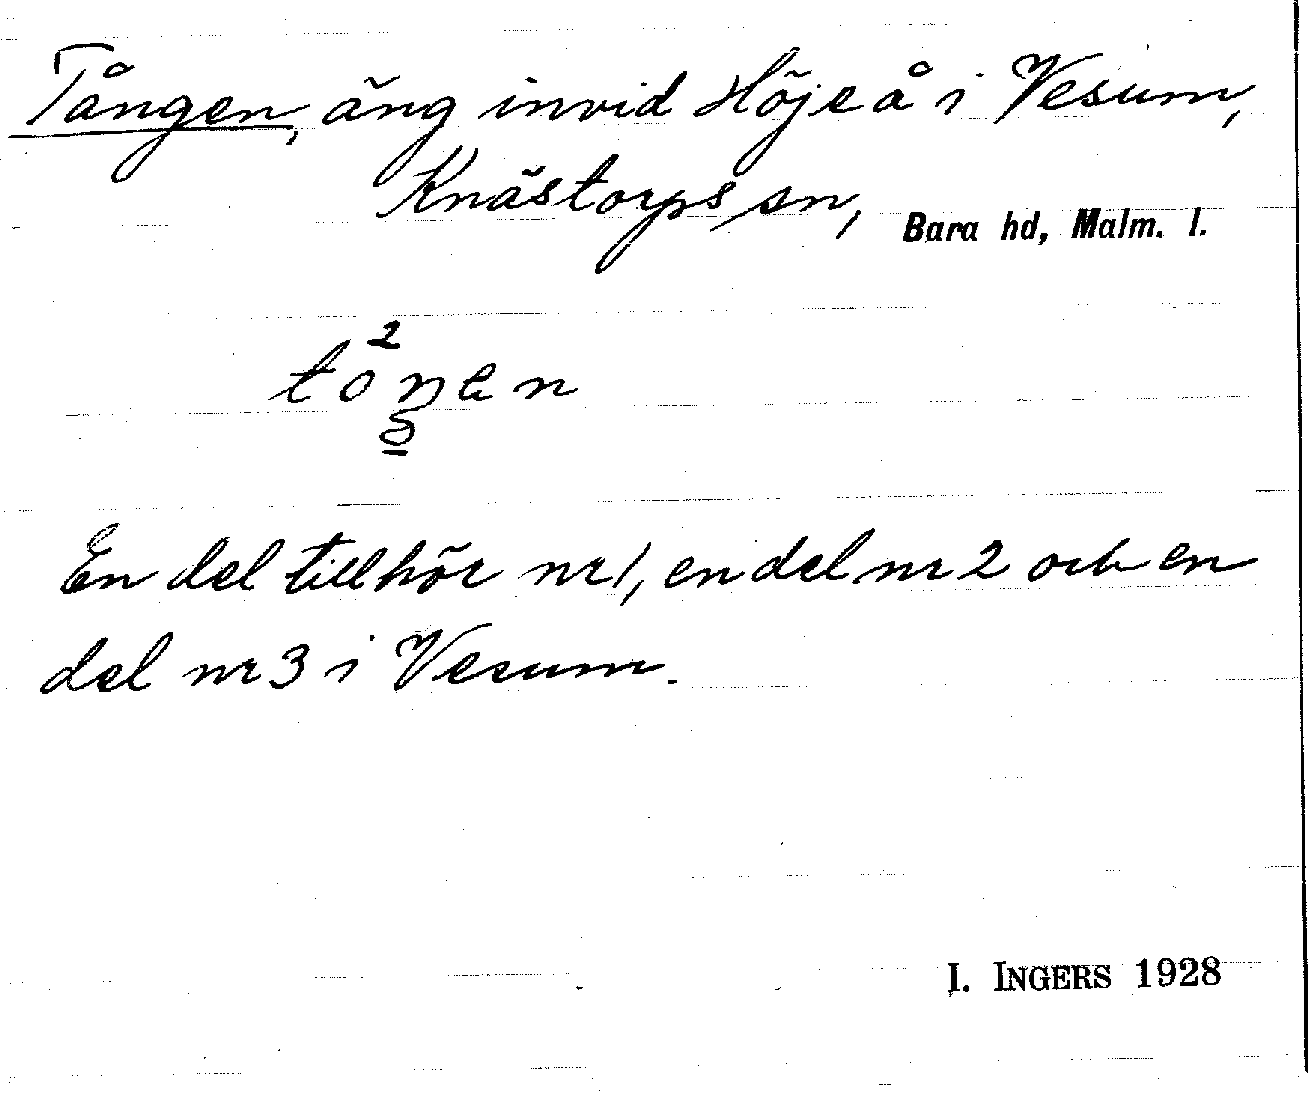 Tången, äng invid Höje å i Vesum,
Knästorps sn, Bara hd, Malm. l.
2
toŋen
o
En del tillhör nr 1, en del nr 2 och en
del nr 3 i Vesum.
I. INGERS 1928